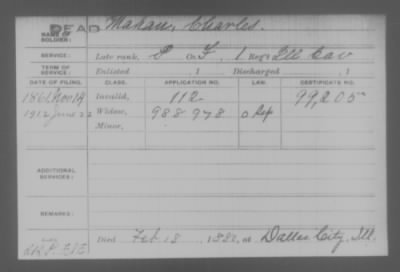 DEAD
NAME OF SOLDIER: Mahan, Charles.
SERVICE: Late rank, P Co. F, 1 Reg't Ill Cav
TERM OF SERVICE: Enlisted 1 Discharged , 1
DATE OF FILING. CLASS. APPLICATION NO. LAW. CERTIFICATE NO.
1861, Nov 19 Invalid, 112 99,205
1912 June 22 Widow, 988 978 o Dep
Minor,
ADDITIONAL SERVICES:
REMARKS:
Died Feb 18, 1882, at Dallas City, Ill.